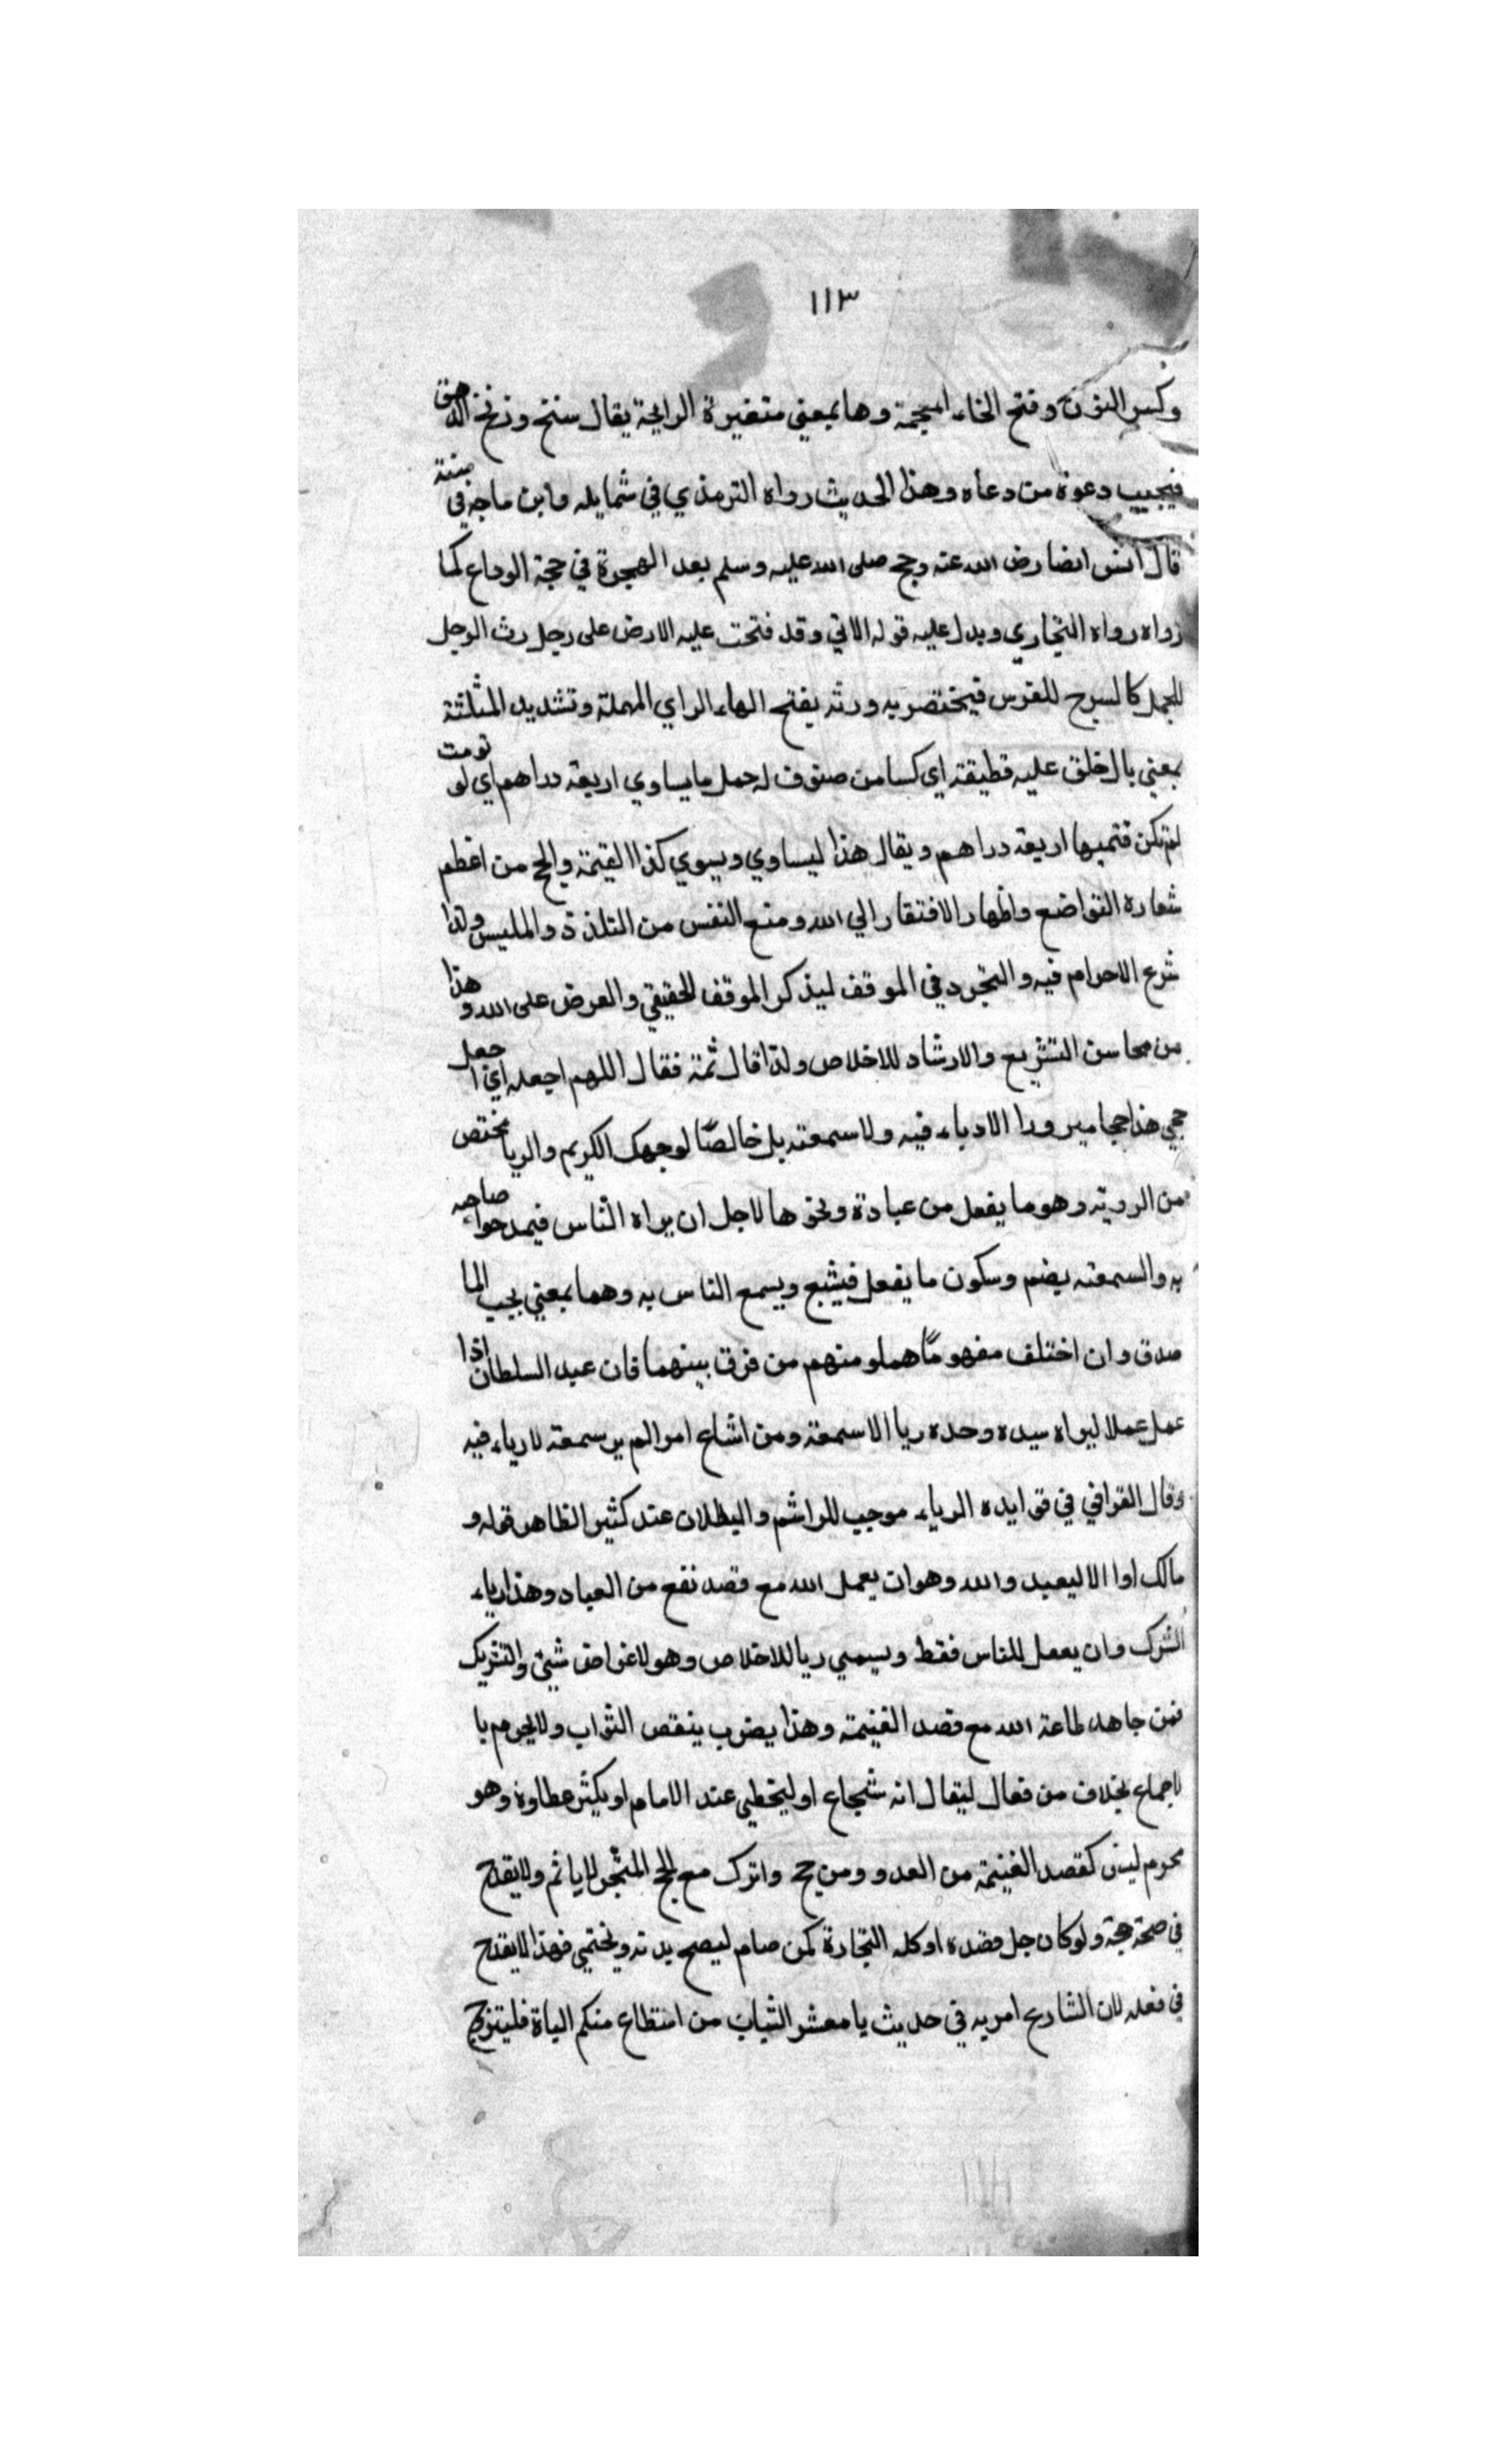 ١١٣
وكسر النون وفتح الخاء المعجمة وها بمعني متغيرة الرايحة يقال سنخ وزنخ الدهن
فيجيب دعوة من دعاه وهذا الحديث رواه الترمذي في شمايله وابن ماجه في سننه
قال انس ايضا رض الله عنه وحج صلى الله عليه وسلم بعد الهجرة في حجة الوداع كما
رواه رواه البخاري ويدل عليه قوله الاتي وقد فتحت عليه الارض على رحل رث الرحل
للجمل كالسرج للفرس فيختصر به ورثه بفتح الهاء الراي المهملة وتشديد المثلثة
بمعني بال خلق عليه قطيفة اي كسا من صنوف له حمل ما يساوي اربعة دراهم اي لو قومت
لم تكن قتميها اربعة دراهم ويقال هذا ليساوي ويسوي كذا القيمة والحج من اعظم
شعاره التواضع واظهار الافتقار الي الله ومنع النفس من التلذذ والملبس ولذا
شرع الاحرام فيه والتجرد في الموقف ليذكر الموقف الحقيقي والعرض على الله وهذا
من محاسن التشريع والارشاد للاخلاص ولذا قال ثمة فقال اللهم اجعله اي اجعل
حجي هذا حجا مبرورا الا دياء فيه ولا سمعته بل خالصًا لوجهك الكريم والريا مختص
من الروية وهو ما يفعل من عبادة ونحوها لاجل ان يراه الناس فيمدحوا صاحبه
به والسمعته بضم وسكون ما يفعل فيشبع ويسمع الناس به وهما بمعني بحيب الما
صدق وان اختلف مفهومًا هملو منهم من فرق بينهما فان عبد السلطان اذا
عمل عملا ليراه سيده وحده ريا الا سمعة ومن اشاع امرا لم ير سمعة لا رياء فيه
وقال القرافي في قوايده الرياء موجب للراشم والبطلان عند كثير الظاهر قوله و
مالك اوا الا ليعبد والله وهوان يعمل الله مع قصد نفع من العباد وهذا رياء
الشرك وان يعمل للناس فقط ويسمي ريا للاخلاص وهو لاغراض شيئ والتشريك
فمن جاهد لطاعة الله مع قصد الغنيمة وهذا يضرب ينقص الثواب ولا يحرم با
لاجماع بخلاف من فعال ليقال انه شجاع او ليخطي عند الامام او يكثر عطاوه وهو
محرم ليس كقصد الغنيمة من العدو ومن حج واترك مع الحج المتجر لا ياثم ولا يقدح
في صحة حجة ولو كان جل قصده او كله التجارة كمن صام ليصح بدنه ويختمي فهذا لا يقدح
في فعله لان الشارع امر به في حديث يا معشر الشباب من استطاع منكم الباة فليتزوج